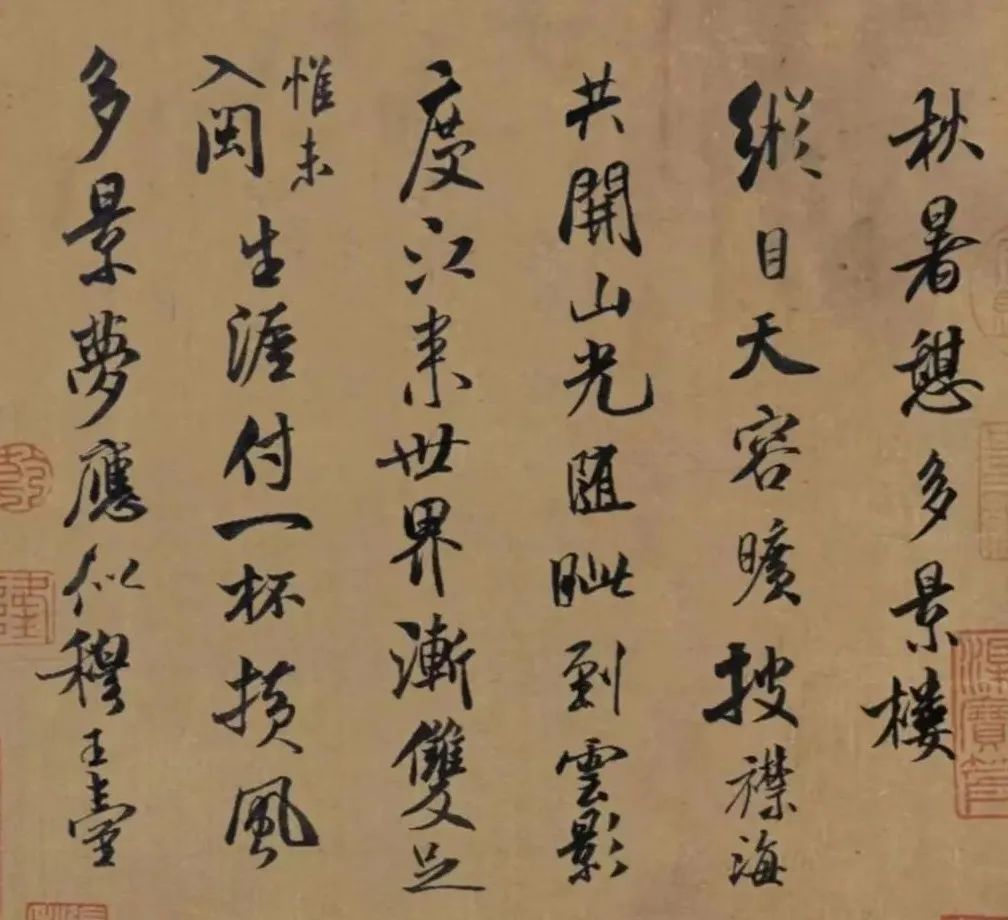 秋暑憩多景樓
縱目天容曠披襟海
共開山光随眦到雲影
度江来世界漸雙足
惟未
入閩生涯付一杯撗風
多景夢應似穆王臺